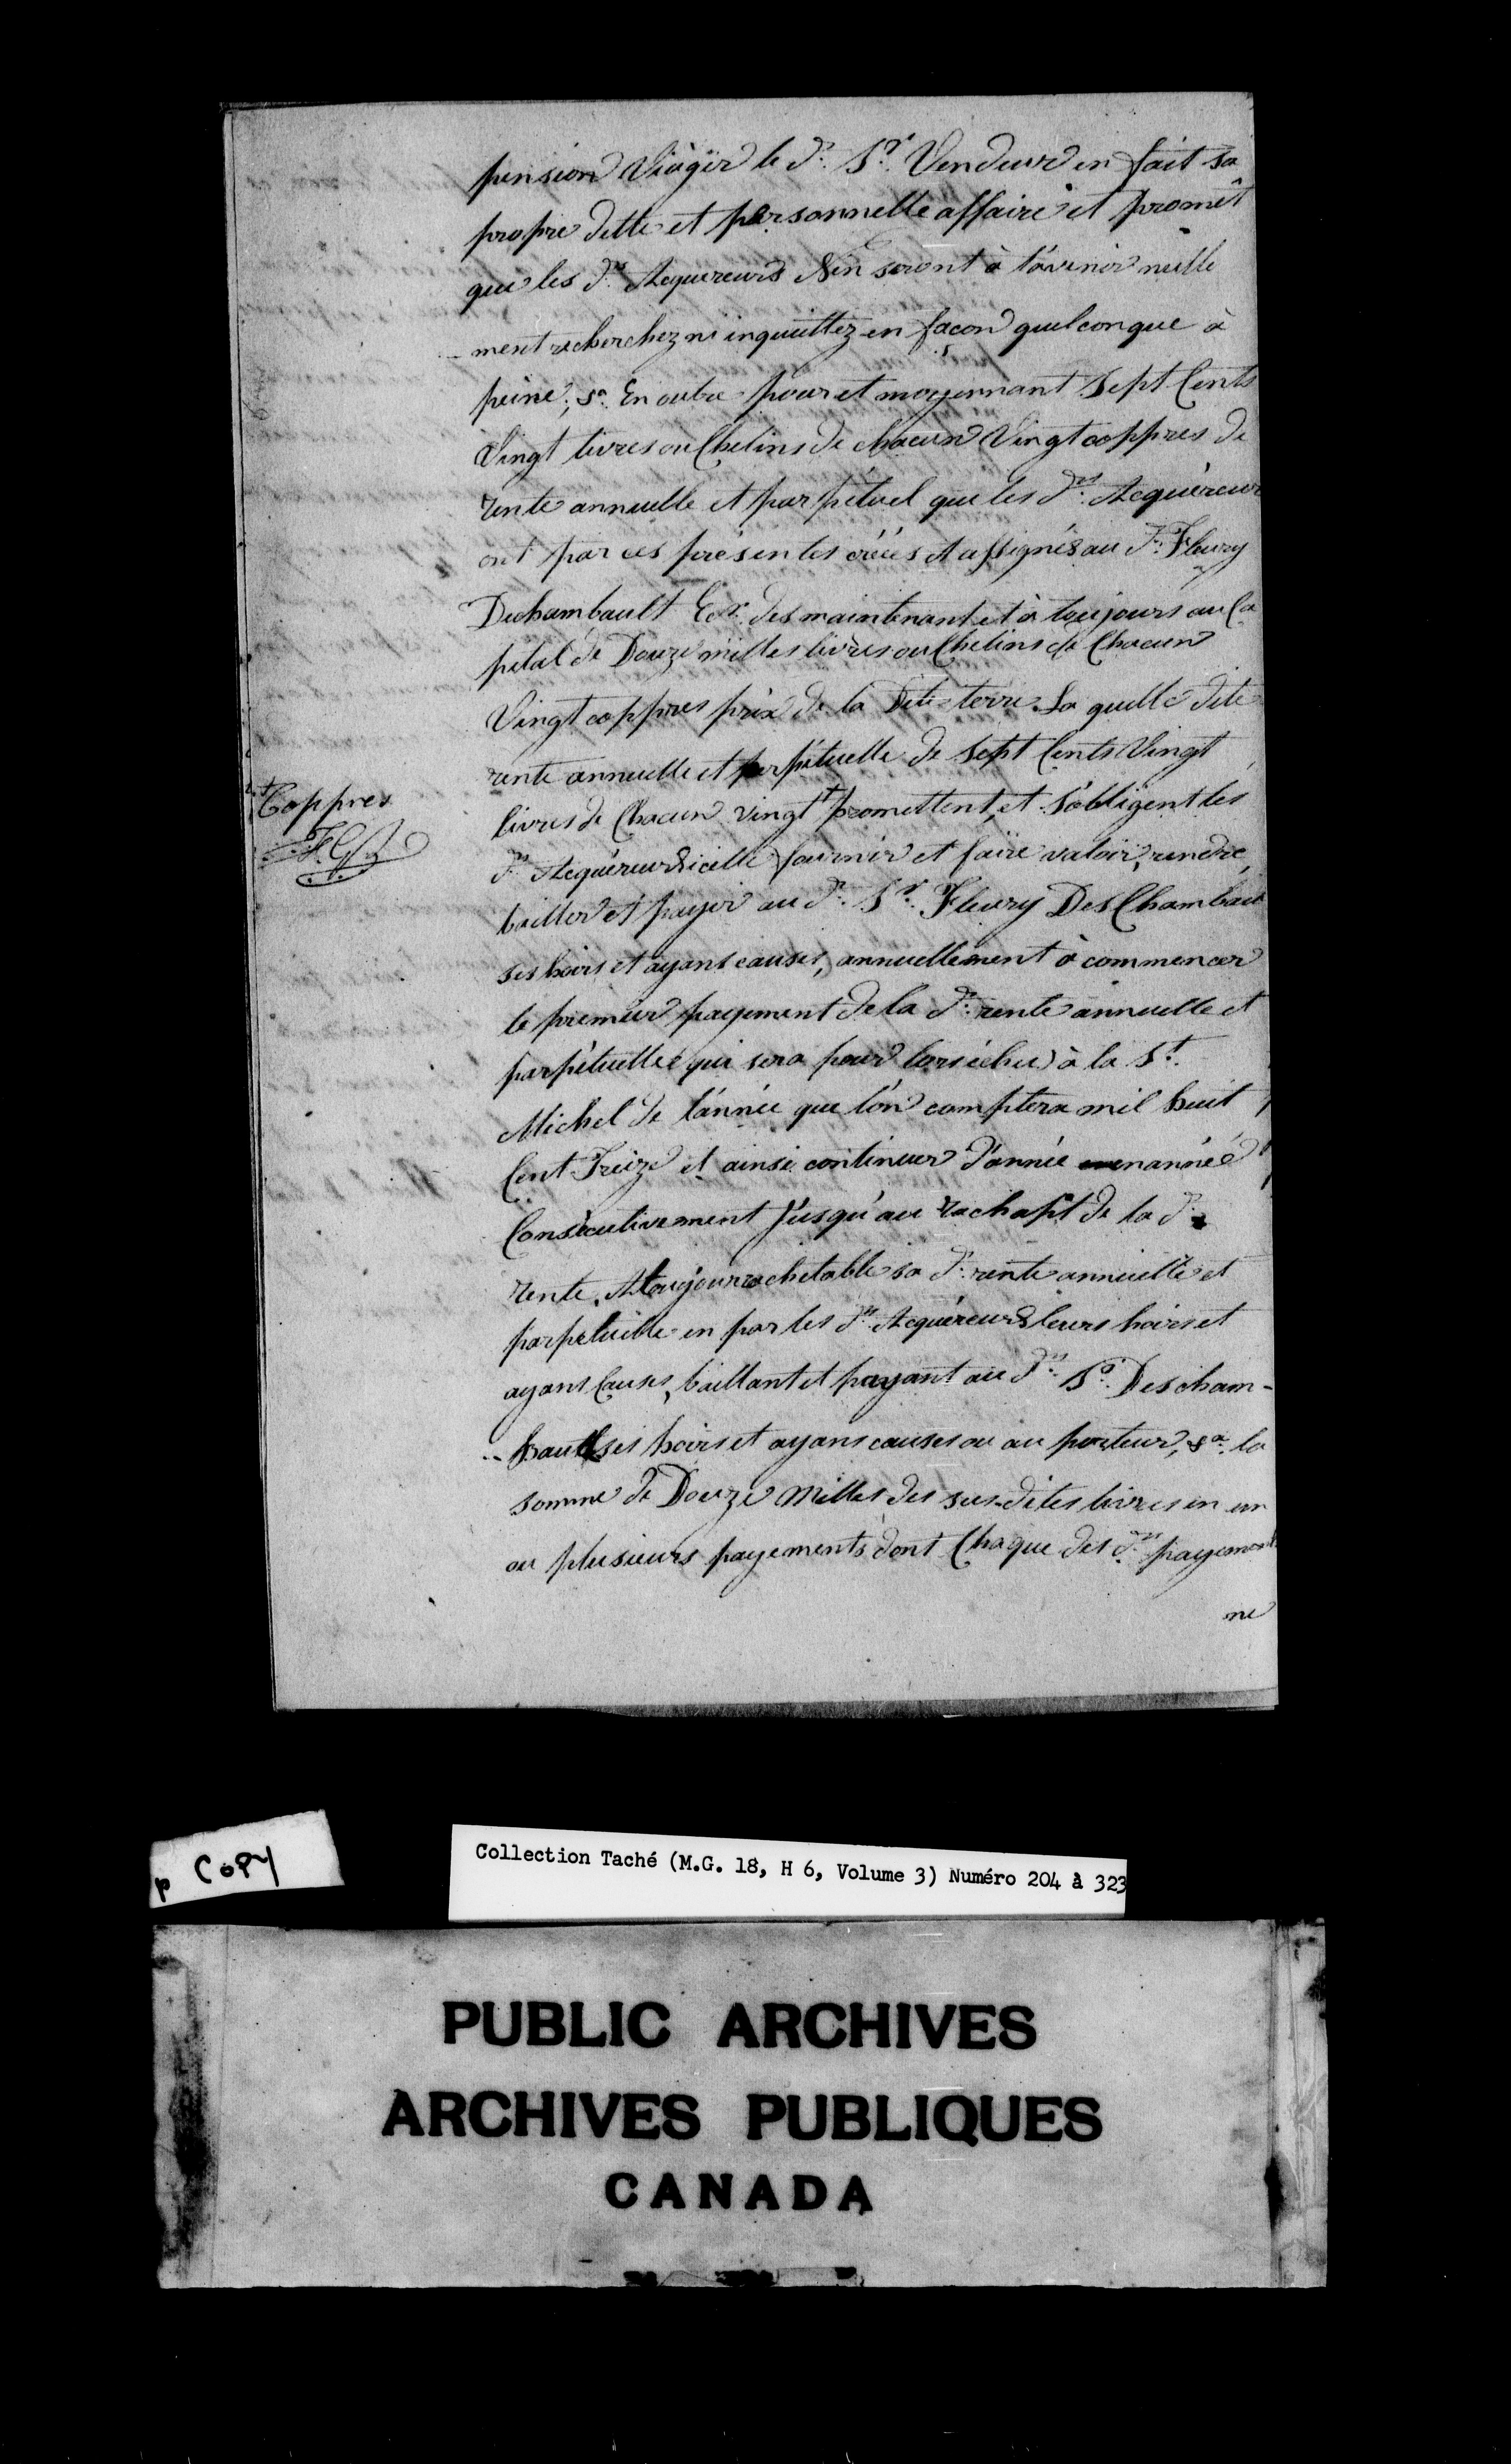 pension Viagër le dt. Sr. Vendeur en fait sa
propre dette et personnelle affaire et promêt
que les dts Acquereurs N'en seront à l'avenir nulle
- ment recherchez ni inquiettez en façon quelconque à
peine, &a. En outre pour et moyennant Sept Cents
Vingt livres ou Chelins de chacun Vingt coppres de
rente annuelle et parpétuel que les dts Acquéreur
ont par ces présentes créés et assignés au Sr. Fleury
Dechambault Ecr. des maintenant et à toujours au Ca
pital de Douze milles livres ou Chelins de Chacun
Vingt coppres prix de la Dite terre. La quelle dite
rente annuelle et perpétuelle de Sept Cents Vingt
livres de Chacun vingt + promettent et S'obligent les
+ Coppres
F.C.
dts Acquéreurs icelle fournir et faire valoir, rendre,
bailler et payer au dt. Sr. Fleury DesChambau
ses hoirs et ayans causes, annuellement à commencer
le premier payement de la dt. rente annuelle et
parpétuelle qui sera pour lors échu à la St.
Michel de l'année que l'on comptera mil huit
Cent Treize et ainsi continuer d'année en année
Consécutivement Jusqu'au rachapt de la dt.
rente, A toujour rachetable sa dt. rente annuelle et
parpetuelle en par les dts Acquéreurs leurs hoirs et
ayans Causes, baillant et payant au dt. Sr. Descham-
- bault ses hoirs et ayans causes ou au porteur, &a. la
somme de Douze Milles des sus-dites livres en un
ou plusieurs payements dont Chaque des dts payements
ne
p COPY
Collection Taché (M.G. 18, H 6, Volume 3) Numéro 204 à 323
PUBLIC ARCHIVES
ARCHIVES PUBLIQUES
CANADA